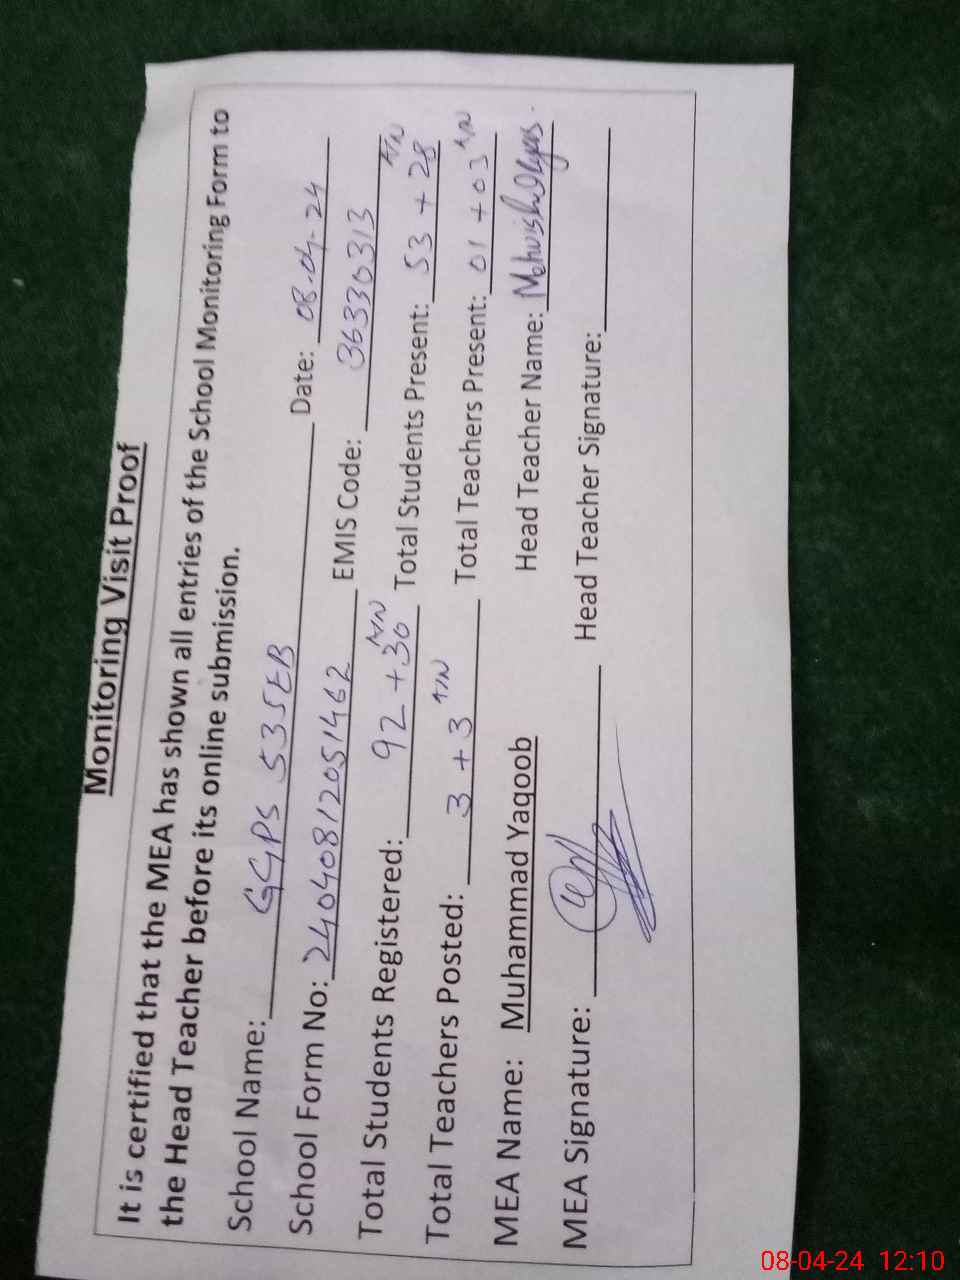 Monitoring Visit Proof
It is certified that the MEA has shown all entries of the School Monitoring Form to
the Head Teacher before its online submission.
School Name: GGPS 535EB Date: 08-04-24
School Form No: 24040812051462 EMIS Code: 36330313
Total Students Registered: 92+30 Total Students Present: 53 + 28
Total Teachers Posted: 3 + 3 Total Teachers Present: 01 + 03
MEA Name: Muhammad Yaqoob Head Teacher Name: Mehwish Ilyas.
MEA Signature: Head Teacher Signature:
08-04-24 12:10